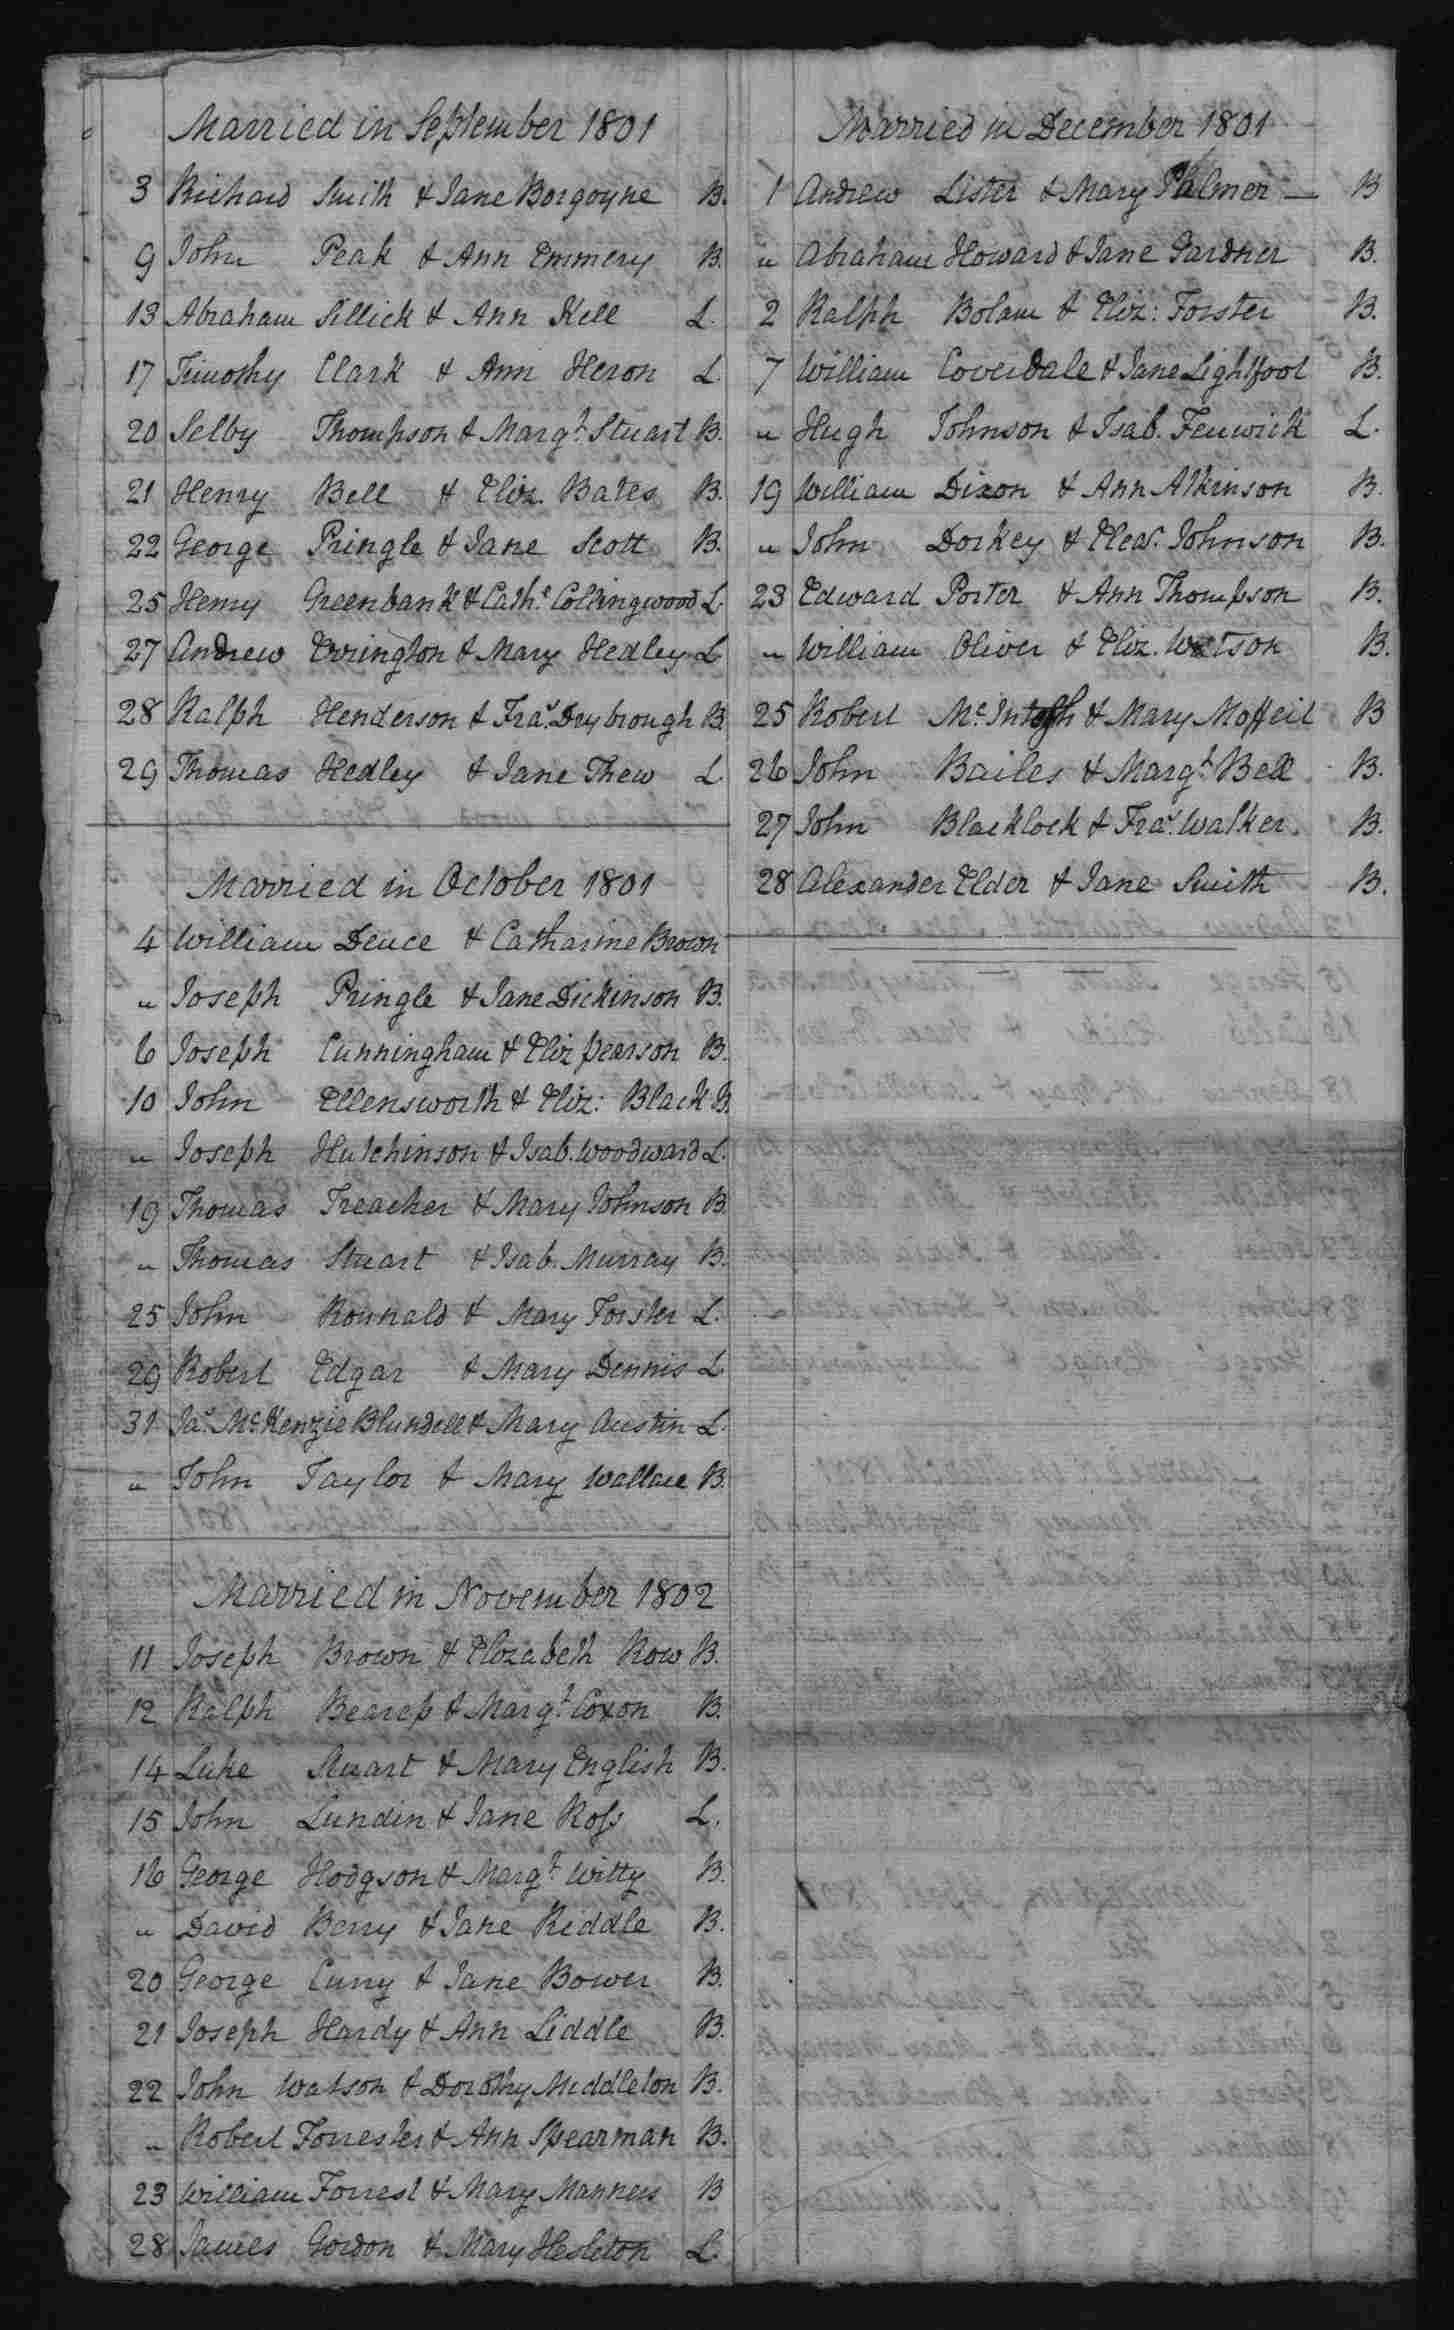 Married in September 1801
3 Richard Smith & Jane Borgoyne B.
9 John Peak & Ann Emmery B.
13 Abraham Sillick & Ann Kell L.
17 Timothy Clark & Ann Heron L.
20 Selby Thompson & Margt. Stuart B.
21 Henry Bell & Eliz. Bates B.
22 George Pringle & Jane Scott B.
25 Henry Greenbank & Cathe. Collingwood L.
27 Andrew Errington & Mary Hedley L
28 Ralph Henderson & Fras. Drybrough B.
29 Thomas Hedley & Jane Thew L.
Married in October 1801
4 William Deuce & Catharine Brown
" Joseph Pringle & Jane Dickinson B.
6 Joseph Cunningham & Eliz pearson B.
10 John Ellensworth & Eliz: Black B.
" Joseph Hutchinson & Isab. Woodward L.
19 Thomas Treacher & Mary Johnson B.
" Thomas Stuart & Isab. Murray B.
25 John Rounald & Mary Forster L.
29 Robert Edgar & Mary Dennis L
31 Jas. Mc.Kenzie Blundell & Mary Austin L.
" John Taylor & Mary Wallace B.
Married in November 1802
11 Joseph Brown & Elizabeth Row B.
12 Ralph Bearep & Margt. Coxon B.
14 Luke Stuart & Mary English B.
15 John Lundin & Jane Ross L.
16 George Hodgson & Margt. Witty B.
" David Berry & Jane Riddle B.
20 George Curry & Jane Bower B.
21 Joseph Hardy & Ann Liddle B.
22 John Watson & Dorothy Middleton B.
" Robert Forrester & Ann Spearman B.
23 William Forrest & Mary Manners B
28 James Gordon & Mary Hesleton L.
Married in December 1801
1 Andrew Lister & Mary Palmer — B
" Abraham Howard & Jane Gardner B.
2 Ralph Bolam & Eliz: Forster B.
7 William Coverdale & Jane Lightfoot B.
" Hugh Johnson & Isab. Fenwick L.
19 William Dixon & Ann Atkinson B.
" John Dorkey & Elear. Johnson B.
23 Edward Porter & Ann Thompson B.
" William Oliver & Eliz. Watson B.
25 Robert Mc.Intosh & Mary Moffeit B
26 John Bailes & Margt. Bell B.
27 John Blacklock & Fras. Walker B.
28 Alexander Elder & Jane Smith B.